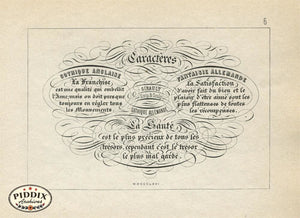 6
Caractères
GOTHIQUE ANGLAISE
La Franchise
est une qualité qui ennoblit
l'Ame, mais on doit presque
toujours en régler tous
les Mouvements
GIRAULT
GOTHIQUE ALLEMANDE
FANTAISIE ALLEMANDE
La Satisfaction
d'avoir fait du bien et le
plaisir d'être aimé sont les
plus flatteuses de toutes
les récompenses.
La Santé
est le plus précieux de tous les
trésors, cependant c'est le trésor
le plus mal gardé
PIDDIX